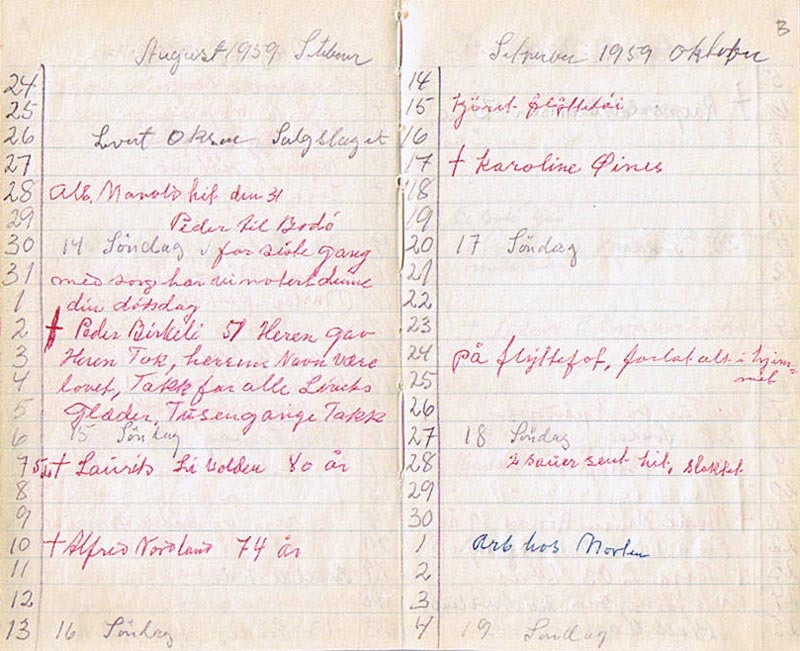 August 1959 September
24
25
26 Levert Oksene Salgslaget
27
28 Alb. Navold hit den 31
29 Peder til Bodö
30 14 Söndag for siste gang
31 med sorg har vi notert denne
1 din dötsdag
2 † Peder Birkeli 51 Heren gav
3 Heren Tok, herrens Navn være
4 lovet, Takk for alle Livets
5 Glæder, Tusengange Takk
6 15 Söndag
7 † Laurits Livolden 80 år
8
9
10 † Alfred Nordland 74 år
11
12
13 16 Söndag
3
September 1959 Oktober
14
15 kjöret flöttetöi
16
17 † Karoline Øines
18
19
20 17 Söndag
21
22
23
24 På flyttefot, forlot alt i hjim-
25 met
26
27 18 Söndag
28 2 sauer sent hit, slaktet
29
30
1 Arb hos Morten
2
3
4 19 Söndag